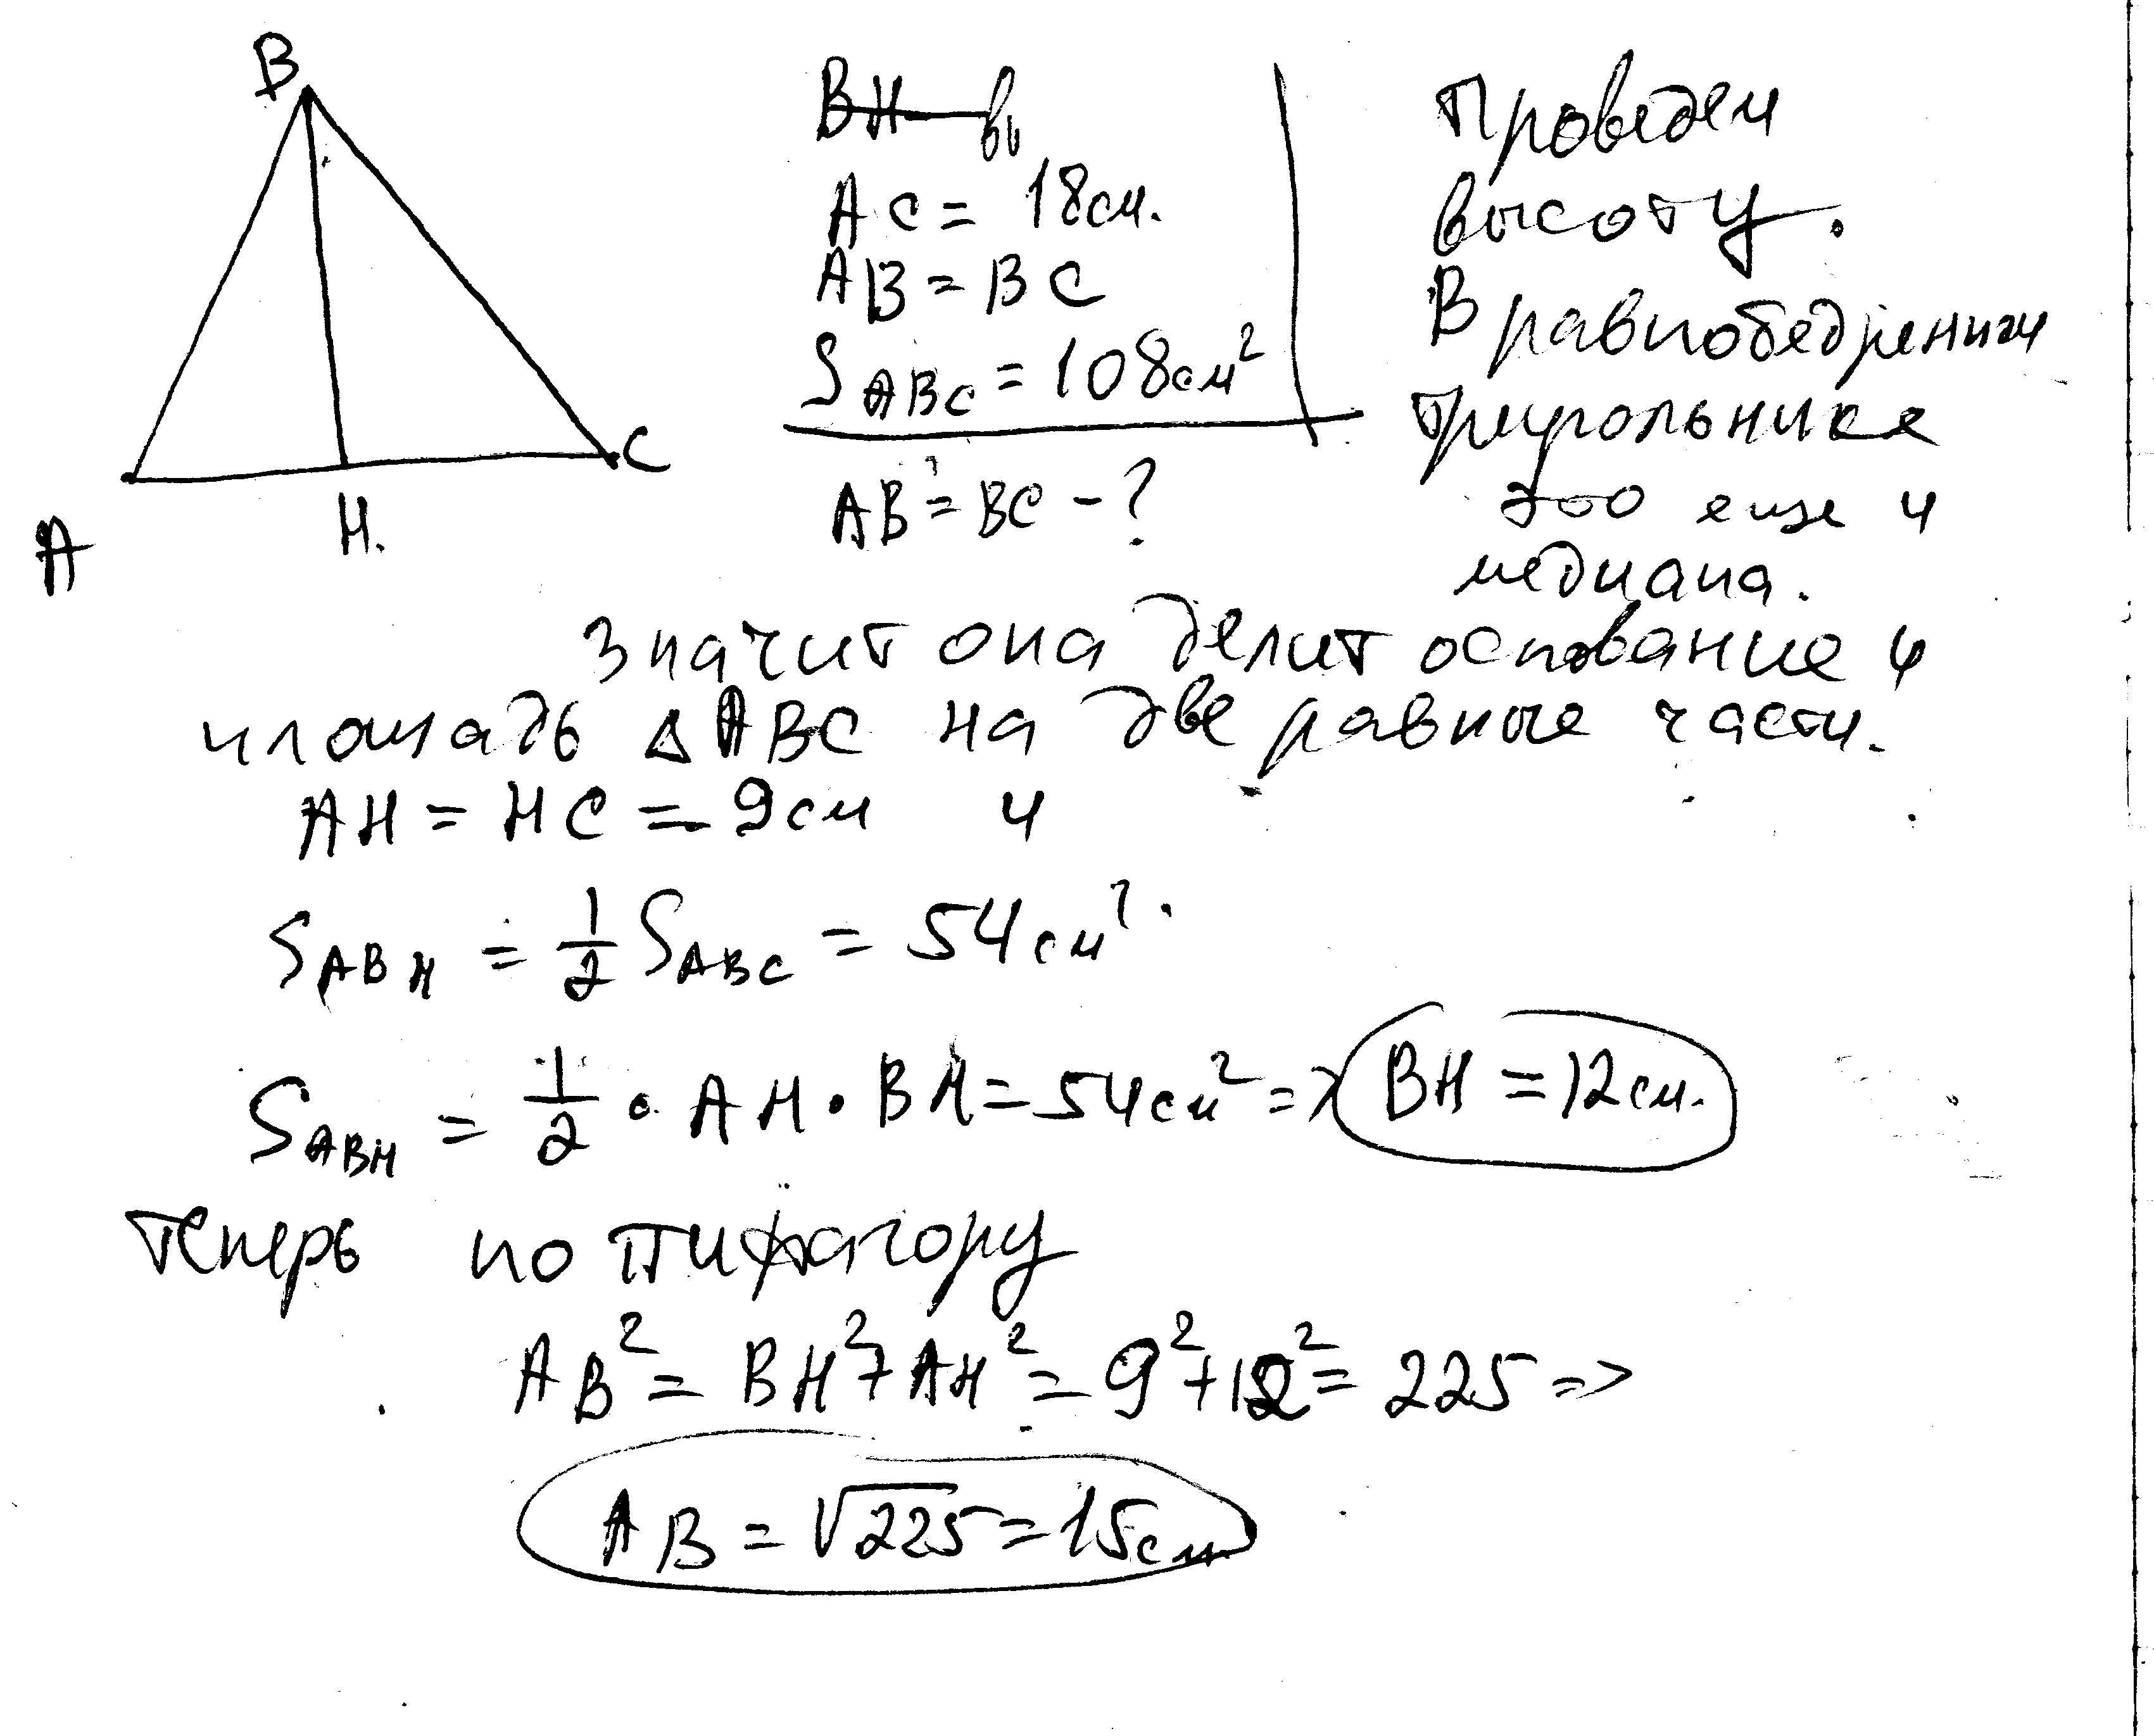 B
C
A
H.
BH — вы
AC = 18см.
AB = BC
S ABC = 108см²
AB = BC - ?
Проведем
высоту.
В равнобедренном
треугольнике
это еще и
медиана.
Значит она делит основание и
площадь Δ ABC на две равные части.
AH = HC = 9см и
S ABH = 1/2 S ABC = 54см².
S ABH = 1/2 · AH · BH = 54см² => BH = 12см.
Теперь по Пифагору
AB² = BH² + AH² = 9² + 12² = 225 =>
AB = √225 = 15см.